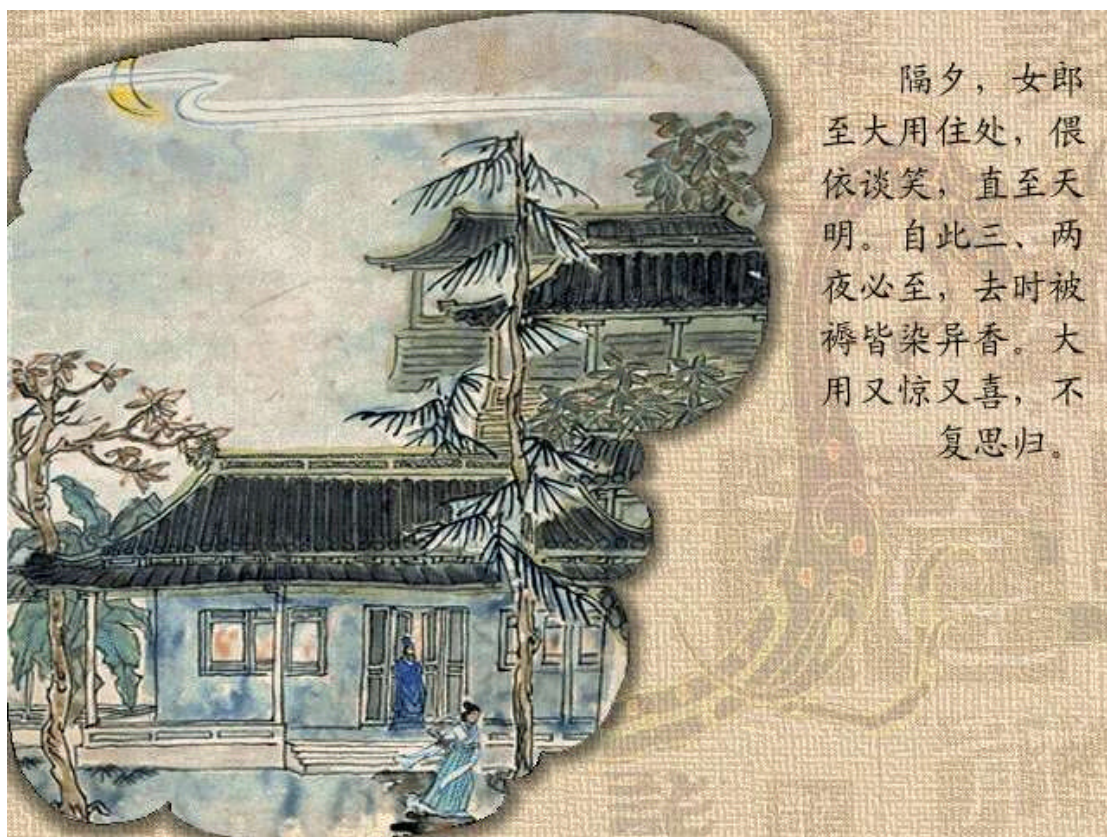 隔夕，女郎
至大用住处，偎
依谈笑，直至天
明。自此三、两
夜必至，去时被
褥皆染异香。大
用又惊又喜，不
复思归。